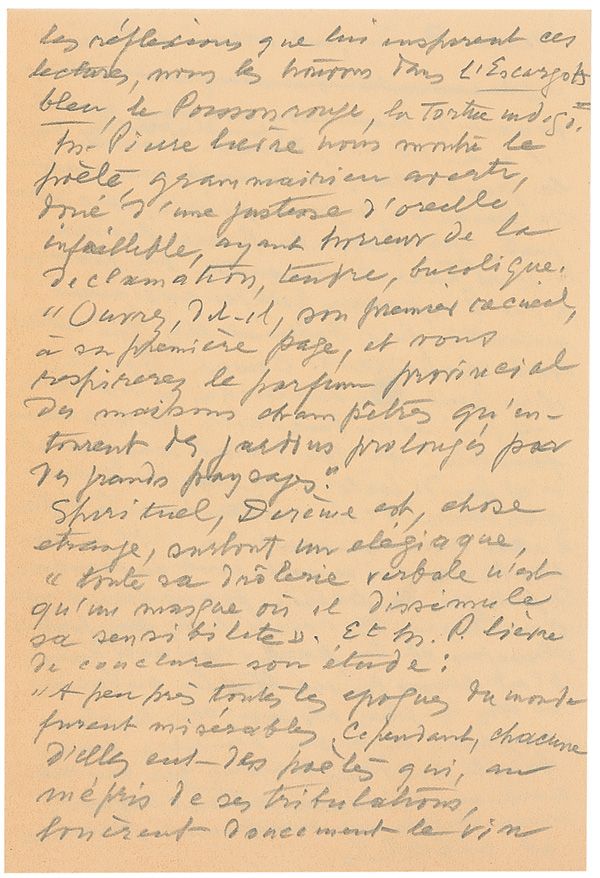 les réflexions que lui inspirent ces
lectures, nous les trouvons dans L'Escargot
bleu, le Poisson rouge, la Tortue indigo.
M. Pierre Lièvre nous montre le
poète, grammairien averti,
doué d'une justesse d'oreille
infaillible, ayant horreur de la
déclamation, tendre, bucolique.
"Ouvrez, dit-il, son premier recueil,
à sa première page, et vous
respirerez le parfum provincial
des maisons champêtres qu'en-
tourent des jardins prolongés par
des grands paysages."
Spirituel, Derème est, chose
étrange, surtout un élégiaque,
« toute sa drôlerie verbale n'est
qu'un masque où il dissimule
sa sensibilité ». Et M. P. Lièvre
de conclure son étude :
"A peu près toutes les époques du monde
furent misérables. Cependant, chacune
d'elles eut des poètes qui, au
mépris de ses tribulations,
louèrent doucement le vin